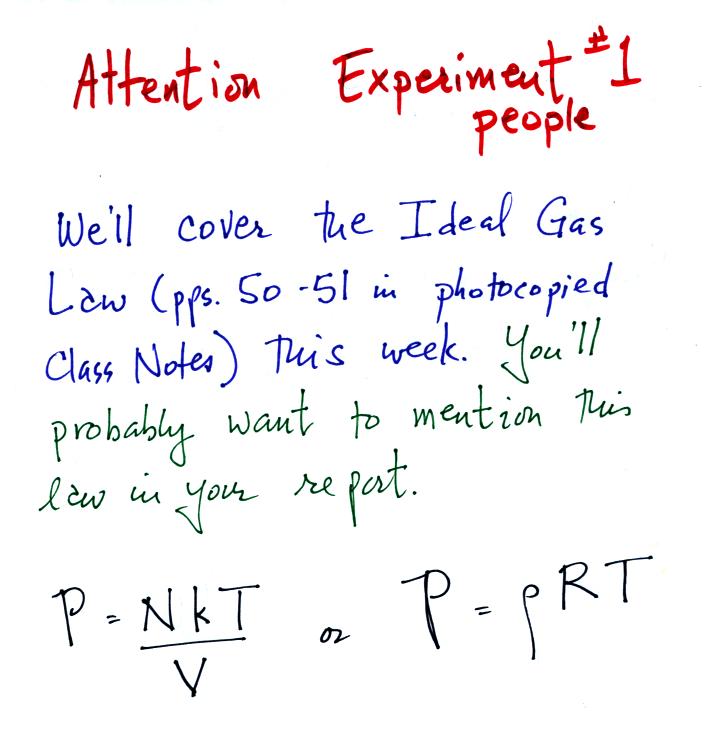 Attention Experiment #1
people
We'll cover the Ideal Gas
Law (pps. 50-51 in photocopied
Class Notes) this week. You'll
probably want to mention this
law in your report.
P = NkT
V
or P = ρRT